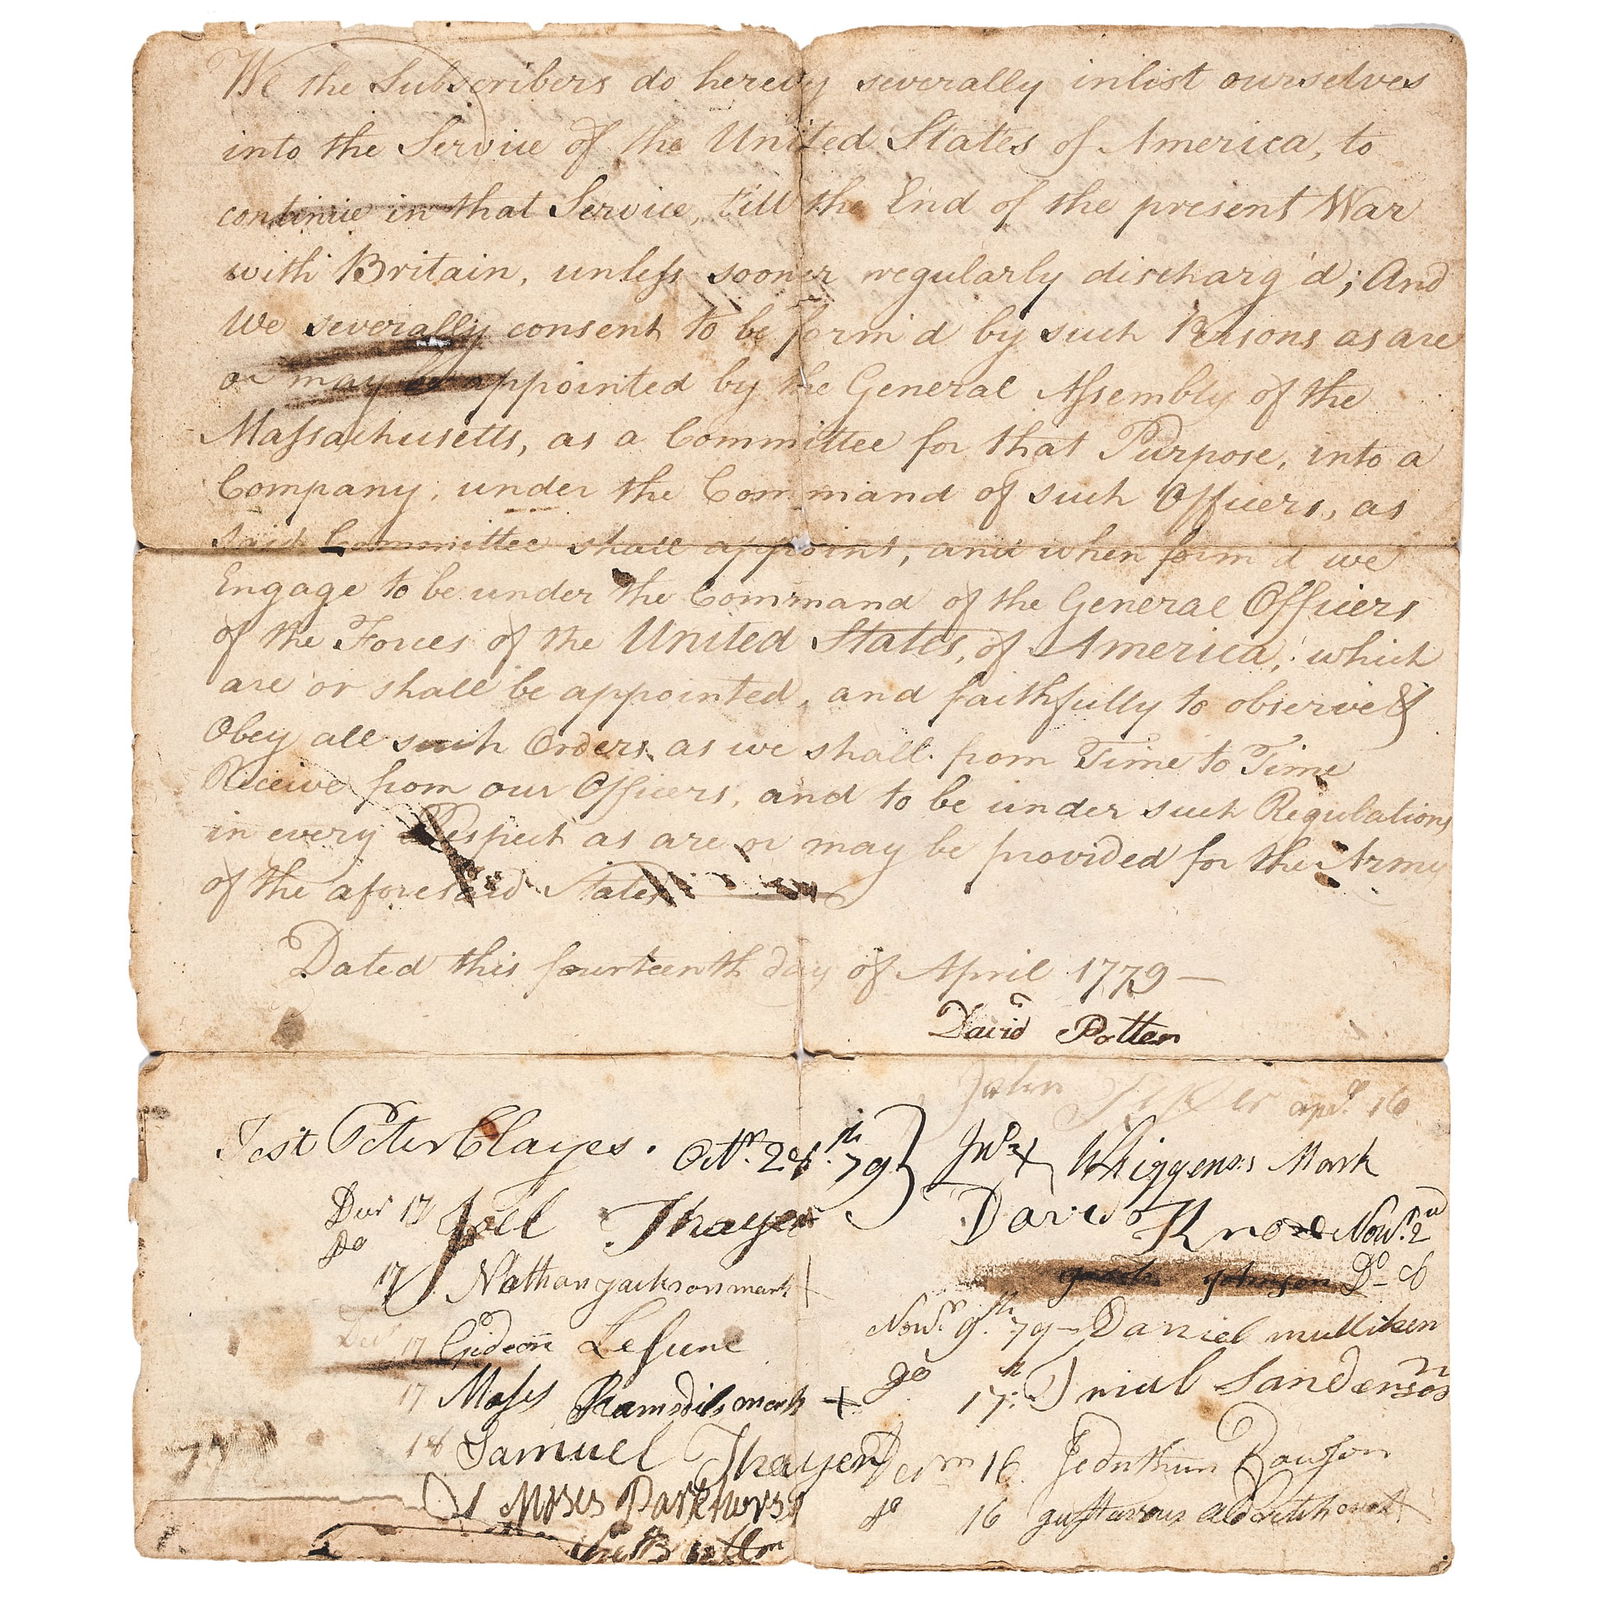 We the Subscribers do hereby severally inlist ourselves
into the Service of the United States of America, to
continue in that Service, till the End of the present War
with Britain, unless sooner regularly discharg'd; And
We severally consent to be form'd by such Persons as are
or may be appointed by the General Assembly of the
Massachusetts, as a Committee for that Purpose, into a
Company, under the Command of such Officers, as
said Committee shall appoint, and when form'd we
Engage to be under the Command of the General Officers
of the Forces of the United States, of America, which
are or shall be appointed, and faithfully to observe &
Obey all such Orders as we shall from Time to Time
Receive from our Officers, and to be under such Regulations
in every Respect as are or may be provided for the Army
of the aforesaid States
Dated this fourteenth day of April 1779 —
David Potter
John apr. 16
Test Peter Clayes. Octr. 79
Whiggens Mark
David Knox Novr. 2nd
Johnson Do
Novr. 9th 79 — Daniel mulliken
do 17th Sanderson
Decm 16 Jeduthun Rawson
do 16 gustavus Aldrich
17 Joel Thayer
Do
17 Nathan Jackson mark +
17 Gideon
17 Moses Ramsdils mark +
18 Samuel Thayer
Moses Parkhurst